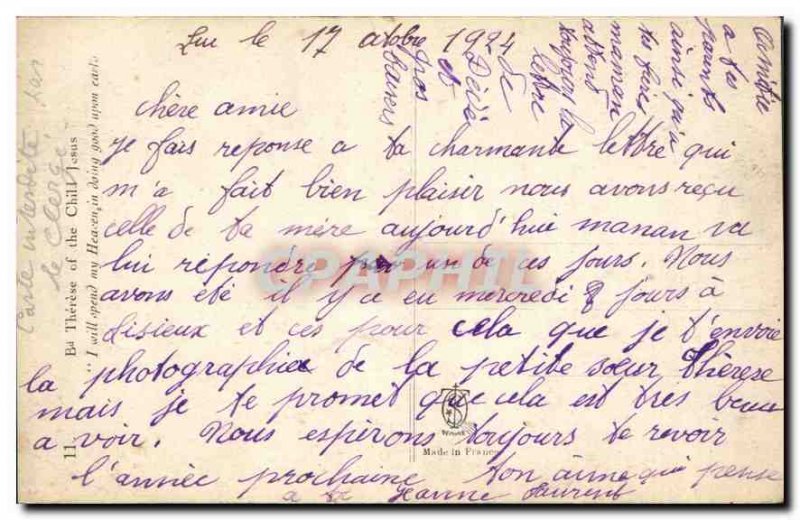 Luc le 17 octobre 1924
chère amie
je fais reponse a ta charmante lettre qui
m'a fait bien plaisir nous avons reçu
celle de ta mère aujourd'hui manan va
lui répondre un de ces jours. Nous
avons été il y a eu mercredi 8 jours à
Lisieux et ces pour cela que je t'envoie
la photographie de la petite sœur Thérèse
mais je te promet que cela est tres beau
a voir. Nous espèrons toujours te revoir
l'année prochaine ton amie qui pense
a toi Jeanne Laurent
Amitié
a tes
parents
ainsi qu'a
tes
manan
attend
toujours la
lettre
de
Dédé
et
gros
baisers
Carte interdite par
le Clergé.
11
Bd Thérèse of the Child Jesus
"I will spend my Heaven, in doing good upon earth"
Made in France
CPAPHIL